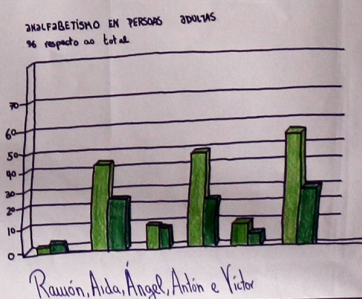 ANALFABETISMO EN PERSOAS ADULTAS
% respecto ao total
70
60
50
40
30
20
10
0
Ramón, Aida, Ángel, Antón e Víctor